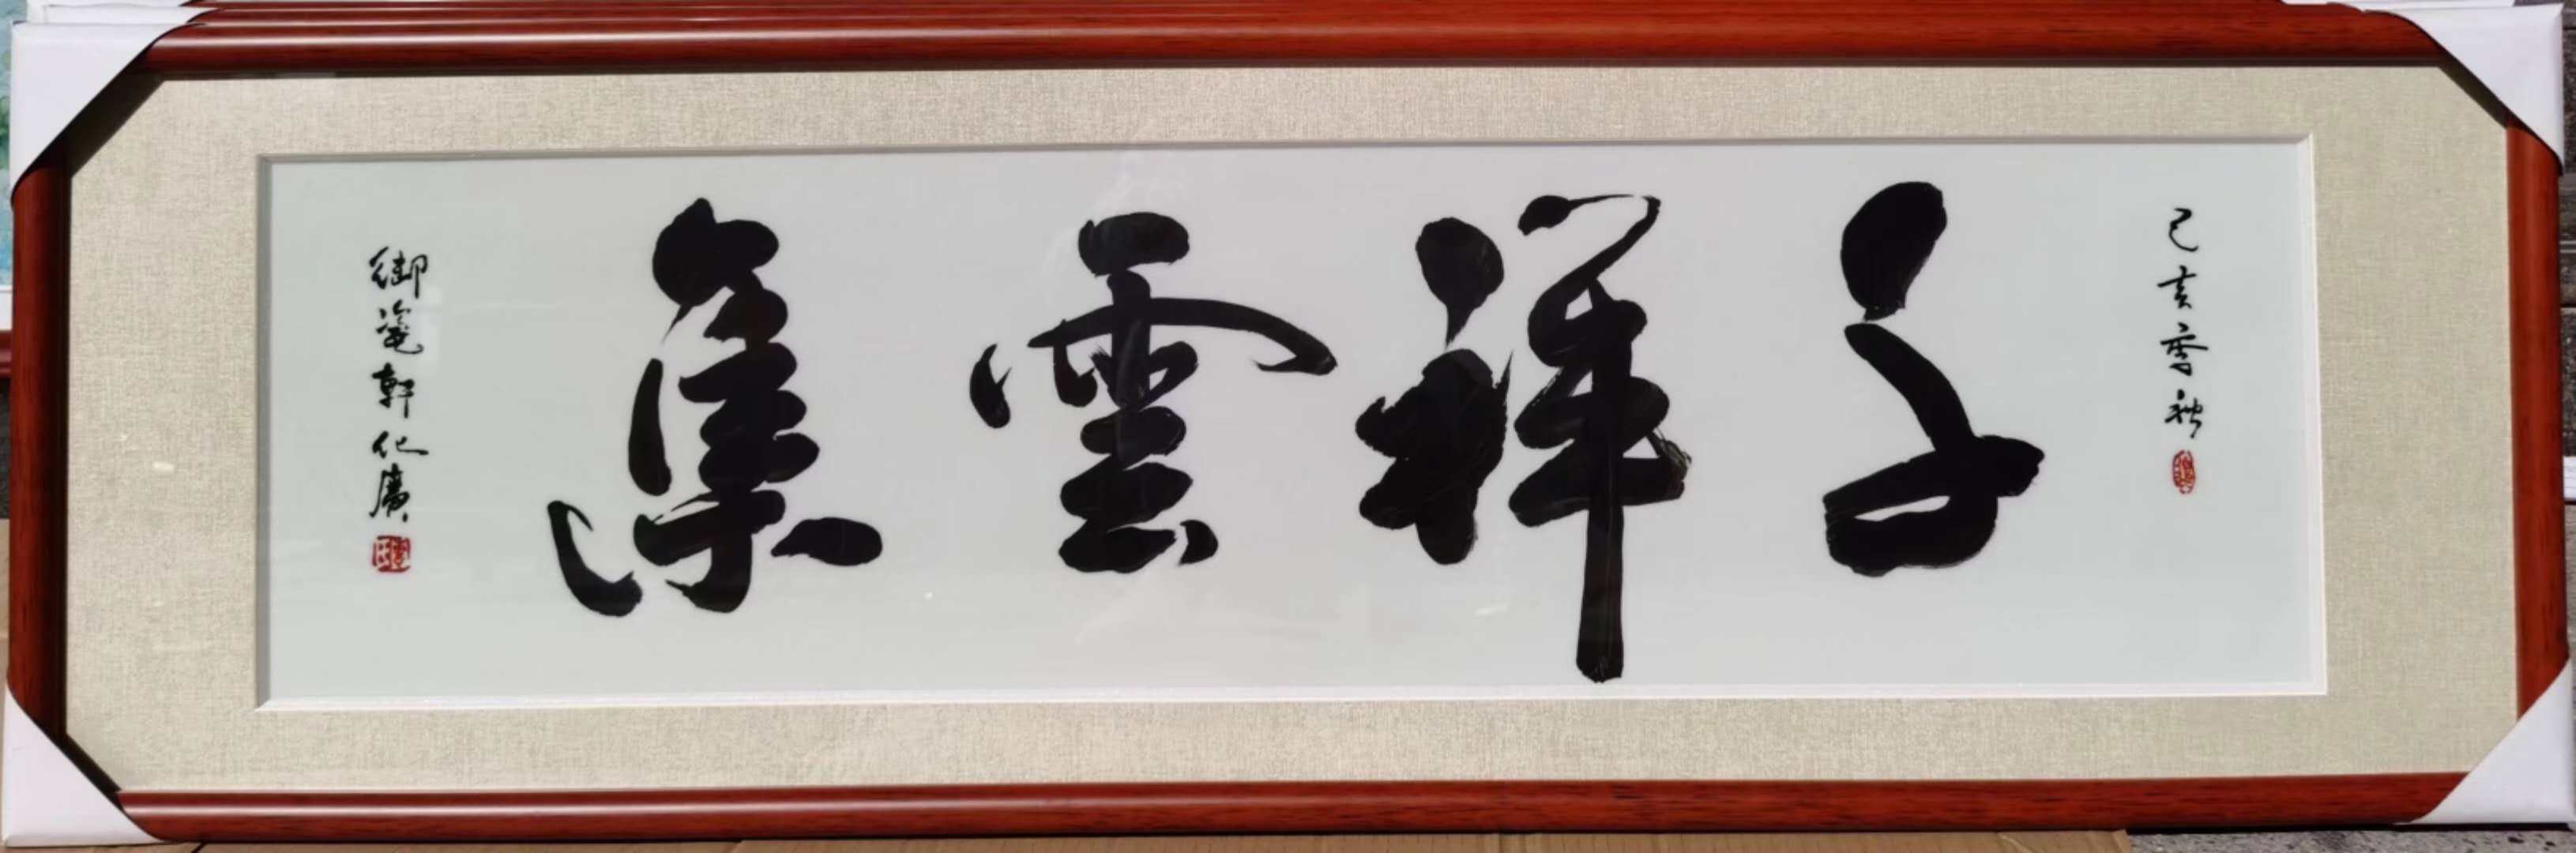 己亥季秋
子祥雲集
御瓷軒化廣